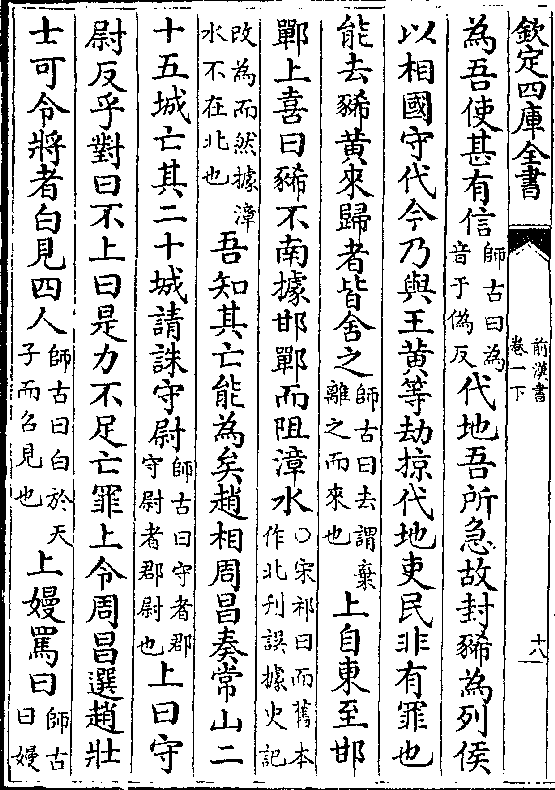 欽定四庫全書
前漢書
卷一下
十八
為吾使甚有信師古曰為音于偽反代地吾所急故封豨為列侯
以相國守代今乃與王黄等劫掠代地吏民非有罪也
能去豨黄來歸者皆舍之師古曰去謂棄離之而來也上自東至邯
鄲上喜曰豨不南據邯鄲而阻漳水○宋祁曰而舊本作北刋誤據史記
改為而然據漳水不在北也吾知其亡能為矣趙相周昌奏常山二
十五城亡其二十城請誅守尉師古曰守者郡守尉者郡尉也上曰守
尉反乎對曰不上曰是力不足亡罪上令周昌選趙壯
士可令將者白見四人師古曰白於天子而召見也上嫚罵曰師古曰嫚